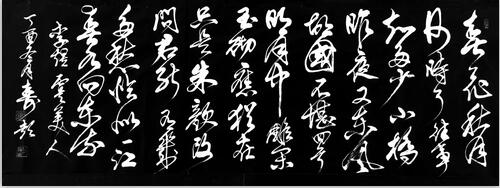 春花秋月
何時了往事
知多少小樓
昨夜又東風
故國不堪回首
明月中雕闌
玉砌應猶在
只是朱顏改
問君能有幾
多愁恰似一江
春水向東流
李煜虞美人
丁酉冬月